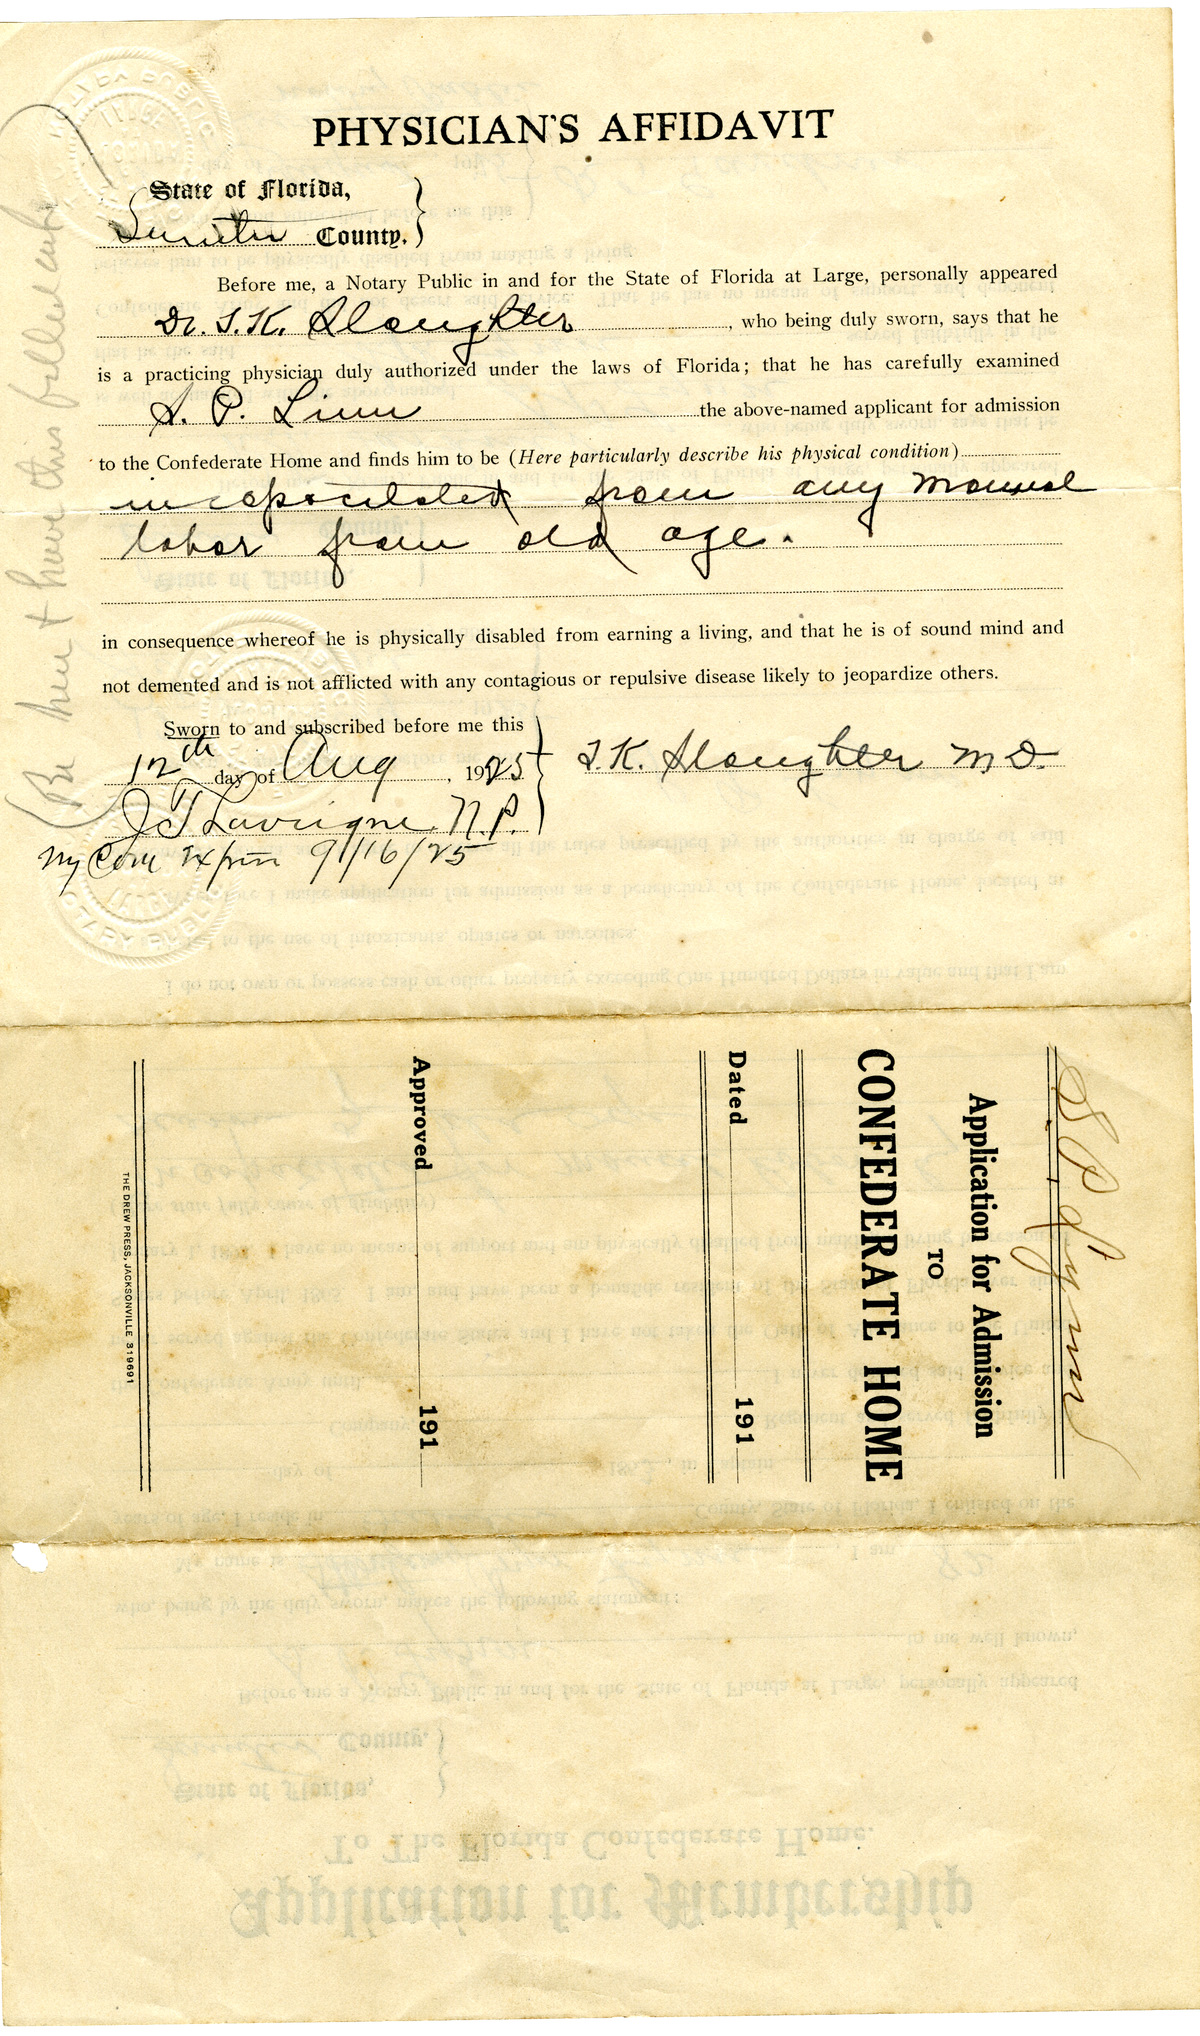 PHYSICIAN'S AFFIDAVIT
State of Florida,
Sumter County.
Before me, a Notary Public in and for the State of Florida at Large, personally appeared
Dr. S. K. Slaughter, who being duly sworn, says that he
is a practicing physician duly authorized under the laws of Florida; that he has carefully examined
S. P. Linn the above-named applicant for admission
to the Confederate Home and finds him to be (Here particularly describe his physical condition)
incapacitated from any manual
labor from old age.
in consequence whereof he is physically disabled from earning a living, and that he is of sound mind and
not demented and is not afflicted with any contagious or repulsive disease likely to jeopardize others.
Sworn to and subscribed before me this
12th day of Aug, 1925
S. K. Slaughter M D.
J T Lavigne N.P.
My Com Expires 9/16/25
(Be here & have this filled out
S. P. Lynn
Application for Admission
TO
CONFEDERATE HOME
Dated 191
Approved 191
THE DREW PRESS, JACKSONVILLE 319691